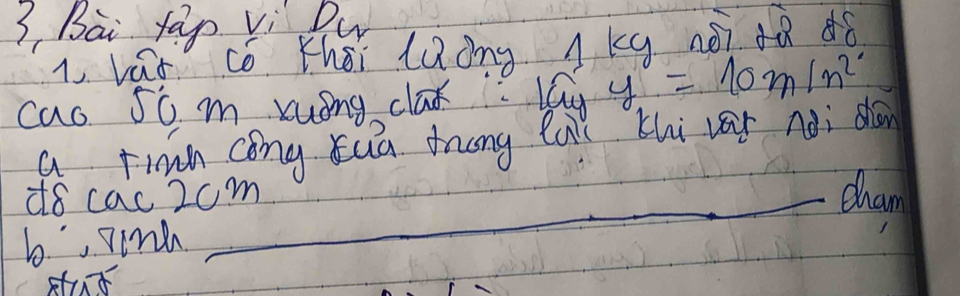 3, Bài tập Ví Dụ
1, Vật có khối lượng 1 kg rơi từ độ
cao 50 m xuống đất : lấy g = 10 m/n²
a tính công của trọng lực khi vật rơi đến
độ cao 20 m
b, Tính ———————— chạm
đất